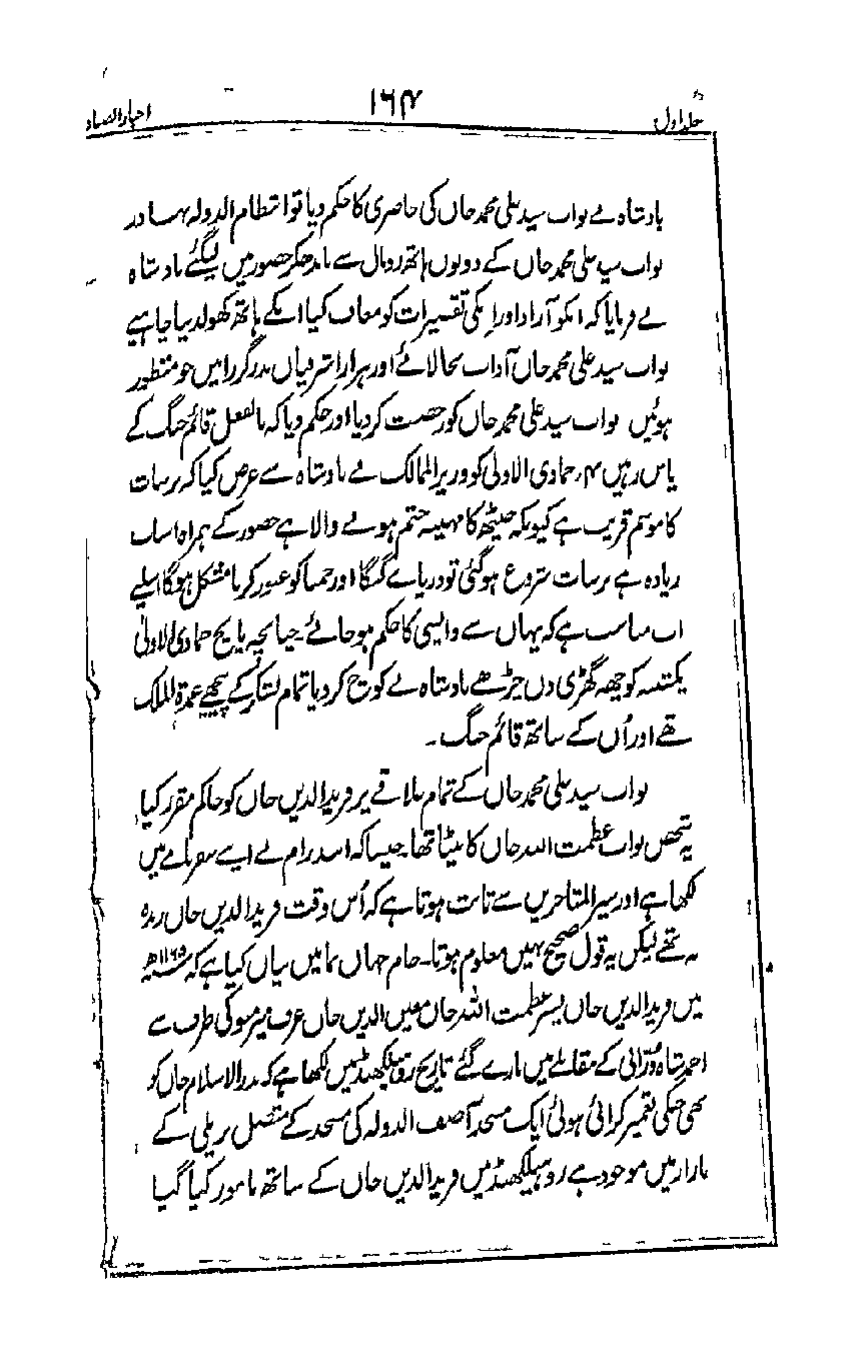 جلد اول ۱۶۴ اخبار الصناد
بادشاہ نے نواب سید علی محمد خاں کی حاضری کا حکم دیا تو انتظام الدولہ بہادر
نواب سید علی محمد خاں کے دونوں ہاتھ رومال سے باندھکر حضور میں لیگئے بادشاہ
نے فرمایا کہ انکو آزاد اور انکی تقصیرات کو معاف کیا انکے ہاتھ کھولدینا چاہیے
نواب سید علی محمد خاں آداب بجا لائے اور ہزار اشرفیاں نذر گزرانیں جو منظور
ہوئیں نواب سید علی محمد خاں کو رخصت کر دیا اور حکم دیا کہ بالفعل قائم جنگ کے
پاس رہیں ۴؍ جمادی الاولیٰ کو وزیر الممالک نے بادشاہ سے عرض کیا کہ برسات
کا موسم قریب ہے کیونکہ جیٹھ کا مہینہ ختم ہونے والا ہے حضور کے ہمراہ اسباب
زیادہ ہے برسات شروع ہو گئی تو دریاے گنگا اور جمنا کو عبور کرنا مشکل ہوگا اسلیے
اب مناسب ہے کہ یہاں سے واپسی کا حکم ہو جائے۔ چنانچہ پانچ جمادی الاولیٰ
یکشنبہ کو چھہ گھڑی دن چڑھے بادشاہ نے کوچ کر دیا تمام لشکر کے پیچھے عمدۃ الملک
تھے اور اُن کے ساتھ قائم جنگ۔
نواب سید علی محمد خاں کے تمام علاقے پر فرید الدین خاں کو حاکم مقرر کیا
یہ شخص نواب عظمت اللہ خاں کا بیٹا تھا۔ جیسا کہ انند رام نے اپنے سفرنامے میں
لکھا ہے اور سیر المتاخرین سے ثابت ہوتا ہے کہ اُس وقت فرید الدین خاں زندہ
نہ تھے لیکن یہ قول صحیح نہیں معلوم ہوتا۔ جام جہاں نما میں بیان کیا ہے کہ ۱۱۶۵ھ
میں فرید الدین خاں پسر عظمت اللہ خاں معین الدین خاں عرف میر منو کی طرف سے
احمد شاہ دُرّانی کے مقابلے میں مارے گئے تاریخ روہیلکھنڈ میں لکھا ہے کہ بدر الاسلام خاں کو
بھی جنکی تعمیر کرائی ہوئی ایک مسجد آصف الدولہ کی مسجد کے متصل بریلی کے
بازار میں موجود ہے روہیلکھنڈ میں فرید الدین خاں کے ساتھ مامور کیا گیا